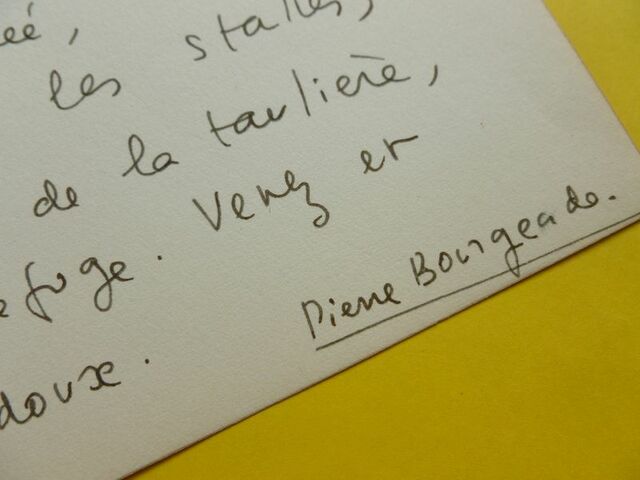 eé,
les stalles,
de la taulière,
efuge. Venez et
doux.
Pierre Bourgeade.